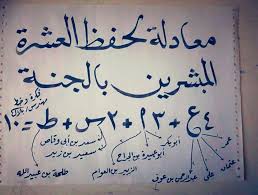 معادلة لحفظ العشرة
المبشرين بالجنة
٤ع + ٣أ + ٢س + ط = ١٠
عمر
عثمان
علي
عبدالرحمن بن عوف
أبو بكر
أبو عبيدة بن الجراح
الزبير بن العوام
سعد بن أبي وقاص
سعيد بن زيد
طلحة بن عبيدالله